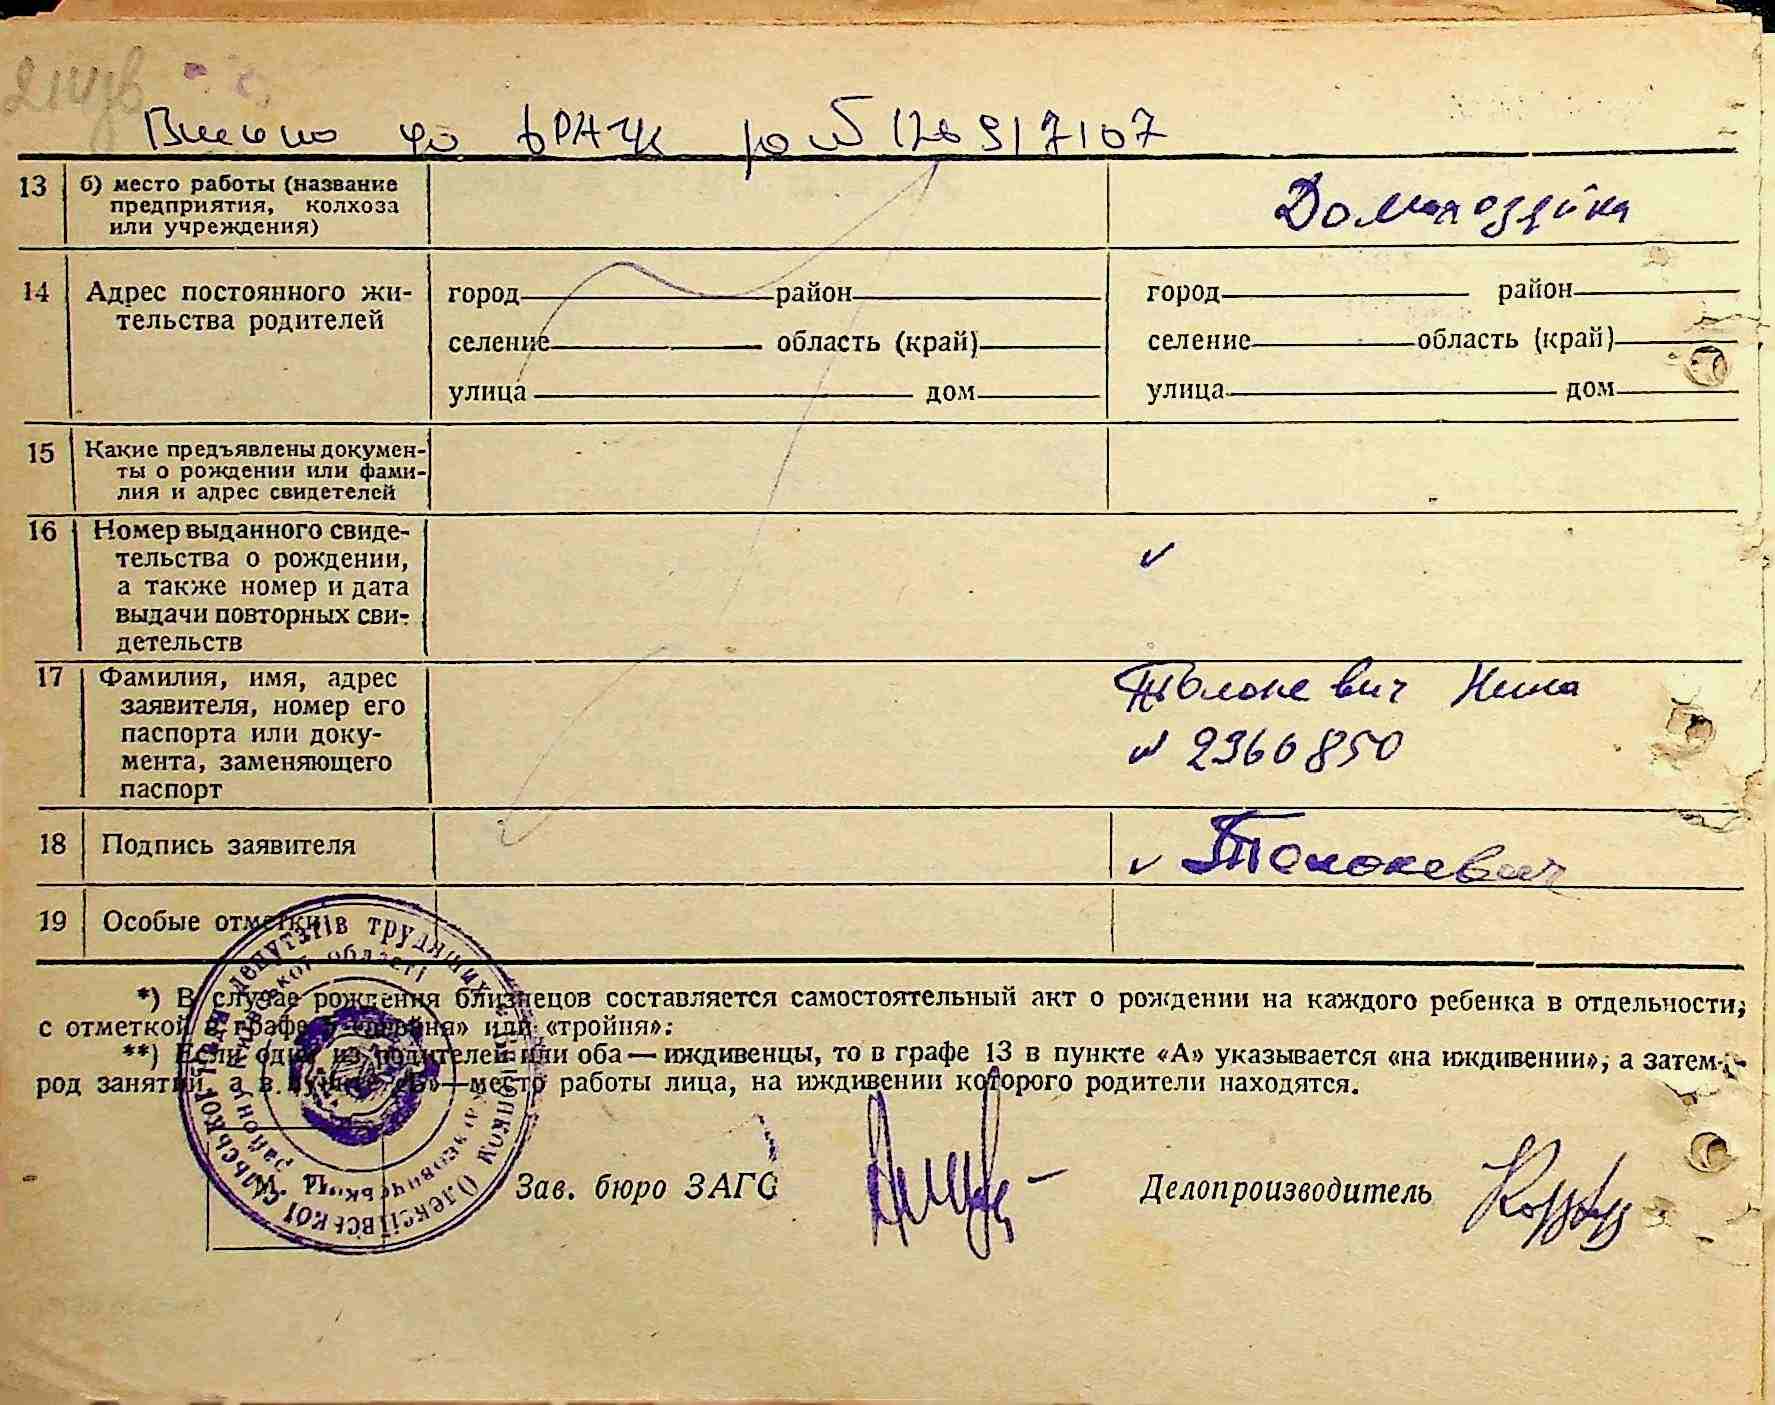 до
13 б) место работы (название
предприятия, колхоза
или учреждения)
Домохозяйка
14 Адрес постоянного жи-
тельства родителей
город район
селение область (край)
улица дом
город район
селение область (край)
улица дом
15 Какие предъявлены докумен-
ты о рождении или фами-
лия и адрес свидетелей
16 Номер выданного свиде-
тельства о рождении,
а также номер и дата
выдачи повторных сви-
детельств
17 Фамилия, имя, адрес
заявителя, номер его
паспорта или доку-
мента, заменяющего
паспорт
Нина
2360850
18 Подпись заявителя
19 Особые отметки
*) В случае рождения близнецов составляется самостоятельный акт о рождении на каждого ребенка в отдельности,
с отметкой в графе 5 «двойня» или «тройня».
**) Если один из родителей или оба — иждивенцы, то в графе 13 в пункте «А» указывается «на иждивении», а затем —
род занятий, а в пункте «Б» — место работы лица, на иждивении которого родители находятся.
М. П. Зав. бюро ЗАГС Делопроизводитель
депутатів трудящих
Олексіївської сільської
області
району